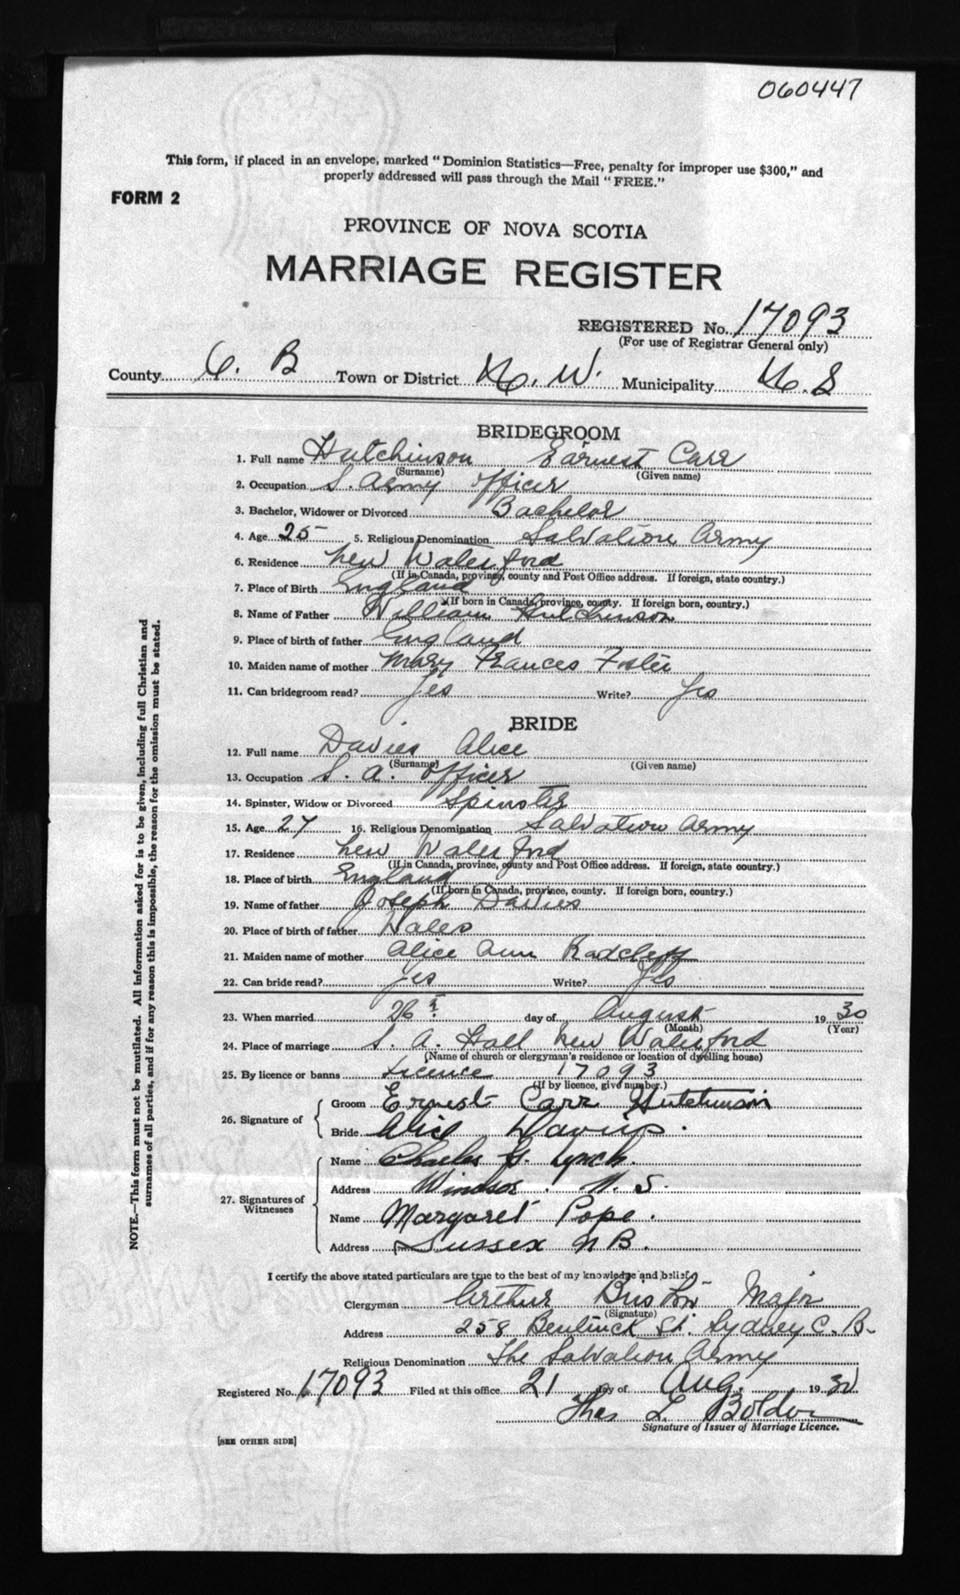 060447
This form, if placed in an envelope, marked "Dominion Statistics—Free, penalty for improper use $300," and
properly addressed will pass through the Mail "FREE."
FORM 2
PROVINCE OF NOVA SCOTIA
MARRIAGE REGISTER
REGISTERED No. 17093
(For use of Registrar General only)
County C. B Town or District N. W. Municipality N. S
BRIDEGROOM
1. Full name Hutchinson Earnest Carr
(Surname) (Given name)
2. Occupation S. Army Officer
3. Bachelor, Widower or Divorced Bachelor
4. Age 25 5. Religious Denomination Salvation Army
6. Residence New Waterford
(If in Canada, province, county and Post Office address. If foreign, state country.)
7. Place of Birth England
(If born in Canada, province, county. If foreign born, country.)
8. Name of Father William Hutchinson
9. Place of birth of father England
10. Maiden name of mother Mary Frances Foster
11. Can bridegroom read? Yes Write? Yes
BRIDE
12. Full name Davies Alice
(Surname) (Given name)
13. Occupation S. A. Officer
14. Spinster, Widow or Divorced Spinster
15. Age 27 16. Religious Denomination Salvation Army
17. Residence New Waterford
(If in Canada, province, county and Post Office address. If foreign, state country.)
18. Place of birth England
(If born in Canada, province, county. If foreign born, country.)
19. Name of father Joseph Davies
20. Place of birth of father Wales
21. Maiden name of mother Alice Ann Radcleff
22. Can bride read? Yes Write? Yes
23. When married 26 day of August 19 30
(Month) (Year)
24. Place of marriage S. A. Hall New Waterford
(Name of church or clergyman's residence or location of dwelling house)
25. By licence or banns Licence 17093
(If by licence, give number.)
26. Signature of
Groom Ernest Carr Hutchinson
Bride Alice Davies.
27. Signatures of Witnesses
Name Charles G. Lynch.
Address Windsor. N. S.
Name Margaret Pope.
Address Sussex N B.
I certify the above stated particulars are true to the best of my knowledge and belief.
Clergyman Arthur Major
(Signature)
Address 258 Bentinck St. Sydney C. B.
Religious Denomination The Salvation Army
Registered No. 17093 Filed at this office 21 day of Aug. 19 30
Thos L.
Signature of Issuer of Marriage Licence.
[SEE OTHER SIDE]
NOTE.—This form must not be mutilated. All information asked for is to be given, including full Christian and
surnames of all parties, and if for any reason this is impossible, the reason for the omission must be stated.